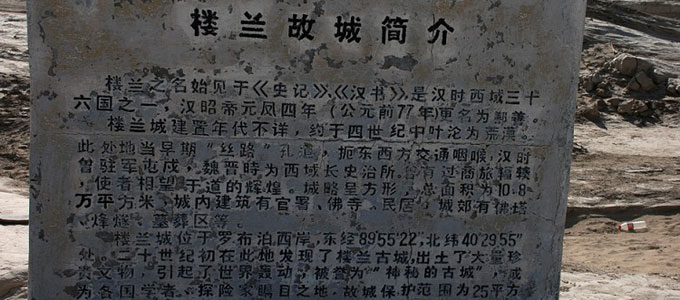 楼兰故城简介
楼兰之名始见于《史记》、《汉书》，是汉时西域三十
六国之一，汉昭帝元凤四年（公元前77年）更名为鄯善。
楼兰城建置年代不详，约于四世纪中叶沦为荒漠。
此处地当早期“丝路”孔道，扼东西方交通咽喉，汉时
曾驻军屯戍，魏晋時为西域长史治所。曾有过商旅辐辏
，使者相望于道的辉煌。城略呈方形，总面积为10.8
万平方米，城内建筑有官署、佛寺、民居，城郊有佛塔
、烽燧、墓葬区等。
楼兰城位于罗布泊西岸，东经89°55′22″，北纬40°29′55″
处，二十世纪初在此地发现了楼兰古城，出土了大量珍
贵文物，引起了世界轰动，被誉为“神秘的古城”，成
为各国学者、探险家瞩目之地。故城保护范围为25平方